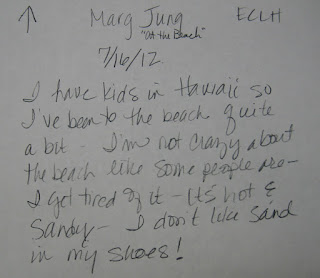 ↑ Marg Jung ECLH
"At the Beach"
7/16/12
I have kids in Hawaii so
I've been to the beach quite
a bit - I'm not crazy about
the beach like some people are -
I get tired of it - It's hot &
Sandy - I don't like sand
in my shoes!